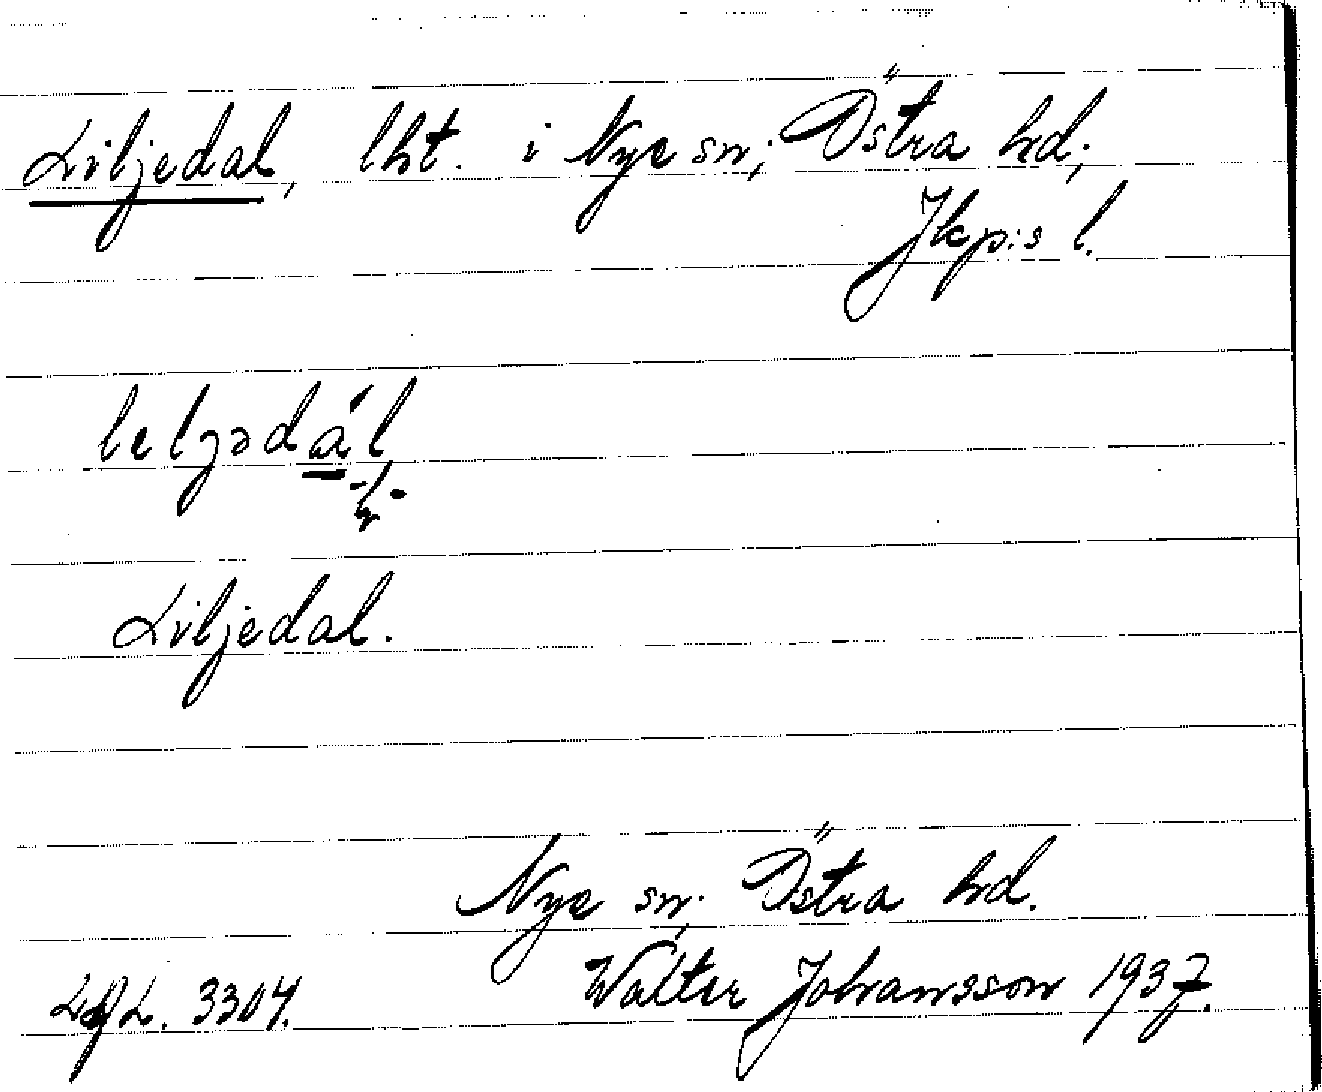 Liljedal, lht. i Nye sn; Östra hd;
Jkp:s l.
Liljedal.
Nye sn; Östra hd.
3304. Walter Johansson 1937.